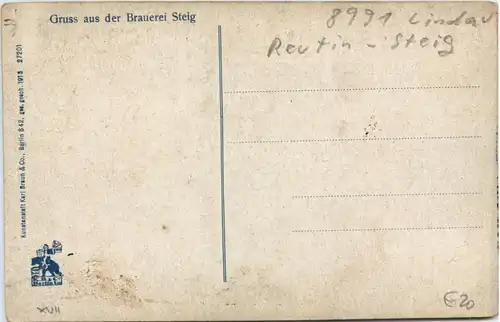 Gruss aus der Brauerei Steig
8991 Lindau
Reutin - Steig
Kunstanstalt Karl Braun & Co., Berlin S 42, ges. gesch. 1915 27201
XVII
€20